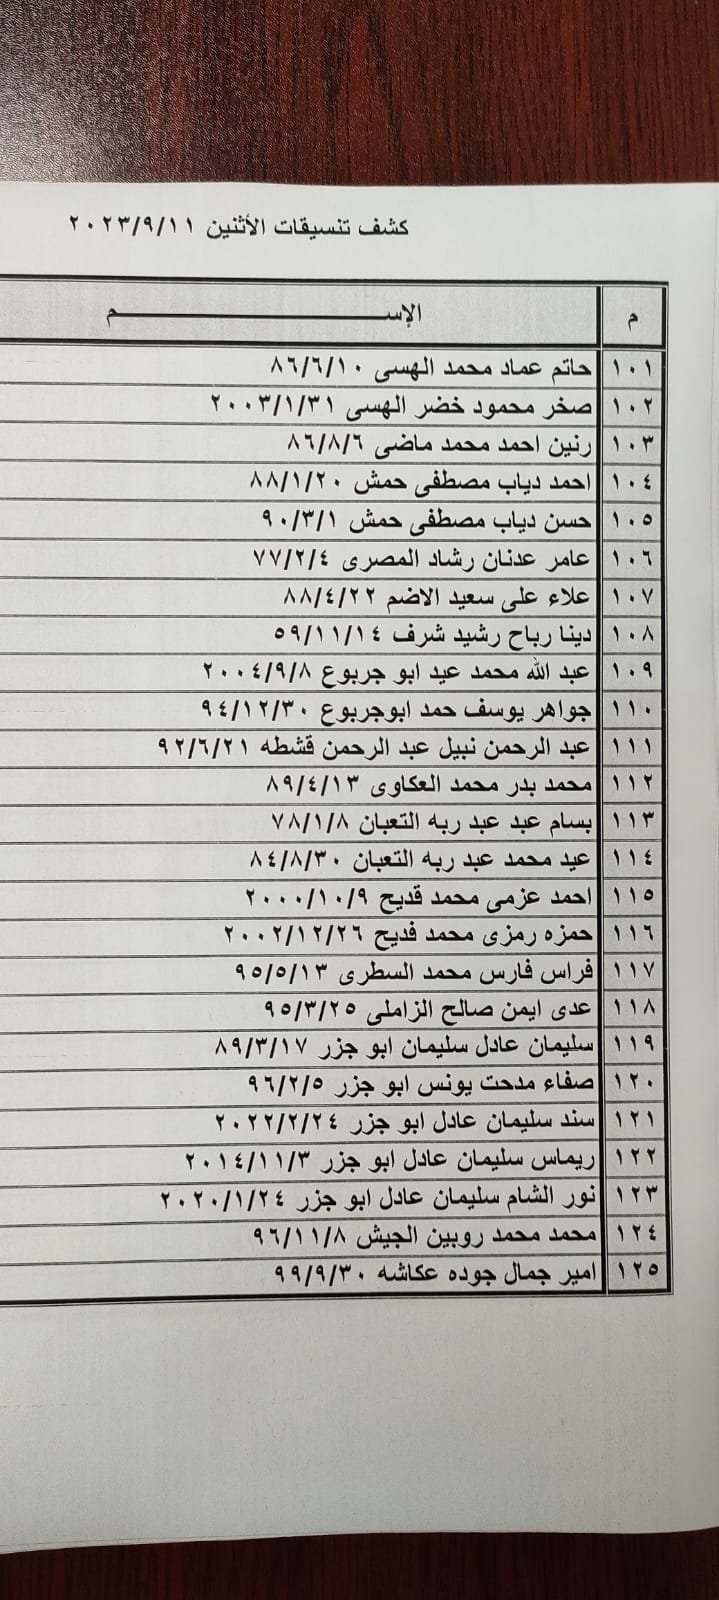 كشف تنسيقات الأثنين ٢٠٢٣/٩/١١
م الإســـــــــــــــــــــــــــم
١٠١ حاتم عماد محمد الهسى ٨٦/٦/١٠
١٠٢ صخر محمود خضر الهسى ٢٠٠٣/١/٣١
١٠٣ رنين احمد محمد ماضى ٨٦/٨/٦
١٠٤ احمد دياب مصطفى حمش ٨٨/١/٢٠
١٠٥ حسن دياب مصطفى حمش ٩٠/٣/١
١٠٦ عامر عدنان رشاد المصرى ٧٧/٢/٤
١٠٧ علاء على سعيد الاضم ٨٨/٤/٢٢
١٠٨ دينا رباح رشيد شرف ٥٩/١١/١٤
١٠٩ عبد الله محمد عيد ابو جربوع ٢٠٠٤/٩/٨
١١٠ جواهر يوسف حمد ابوجربوع ٩٤/١٢/٣٠
١١١ عبد الرحمن نبيل عبد الرحمن قشطه ٩٢/٦/٢١
١١٢ محمد بدر محمد العكاوى ٨٩/٤/١٣
١١٣ بسام عبد عبد ربه التعبان ٧٨/١/٨
١١٤ عيد محمد عبد ربه التعبان ٨٤/٨/٣٠
١١٥ احمد عزمى محمد قديح ٢٠٠٠/١٠/٩
١١٦ حمزه رمزى محمد فديح ٢٠٠٢/١٢/٢٦
١١٧ فراس فارس محمد السطرى ٩٥/٥/١٣
١١٨ عدى ايمن صالح الزاملى ٩٥/٣/٢٥
١١٩ سليمان عادل سليمان ابو جزر ٨٩/٣/١٧
١٢٠ صفاء مدحت يونس ابو جزر ٩٦/٢/٥
١٢١ سند سليمان عادل ابو جزر ٢٠٢٢/٢/٢٤
١٢٢ ريماس سليمان عادل ابو جزر ٢٠١٤/١١/٣
١٢٣ نور الشام سليمان عادل ابو جزر ٢٠٢٠/١/٢٤
١٢٤ محمد محمد روبين الجيش ٩٦/١١/٨
١٢٥ امير جمال جوده عكاشه ٩٩/٩/٣٠